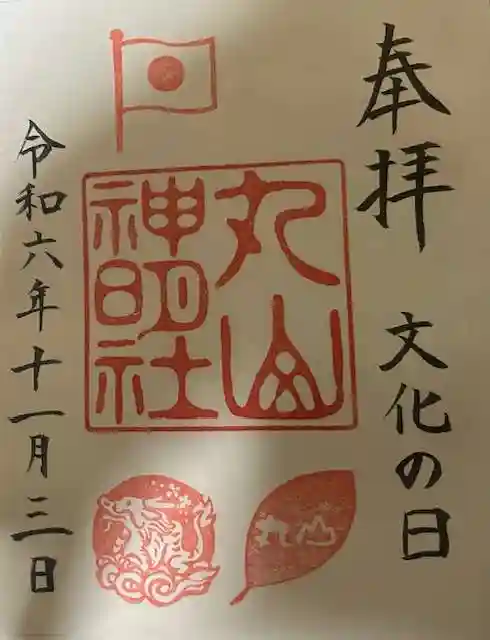 奉拝 文化の日
丸山
神明社
丸山
令和六年十一月三日